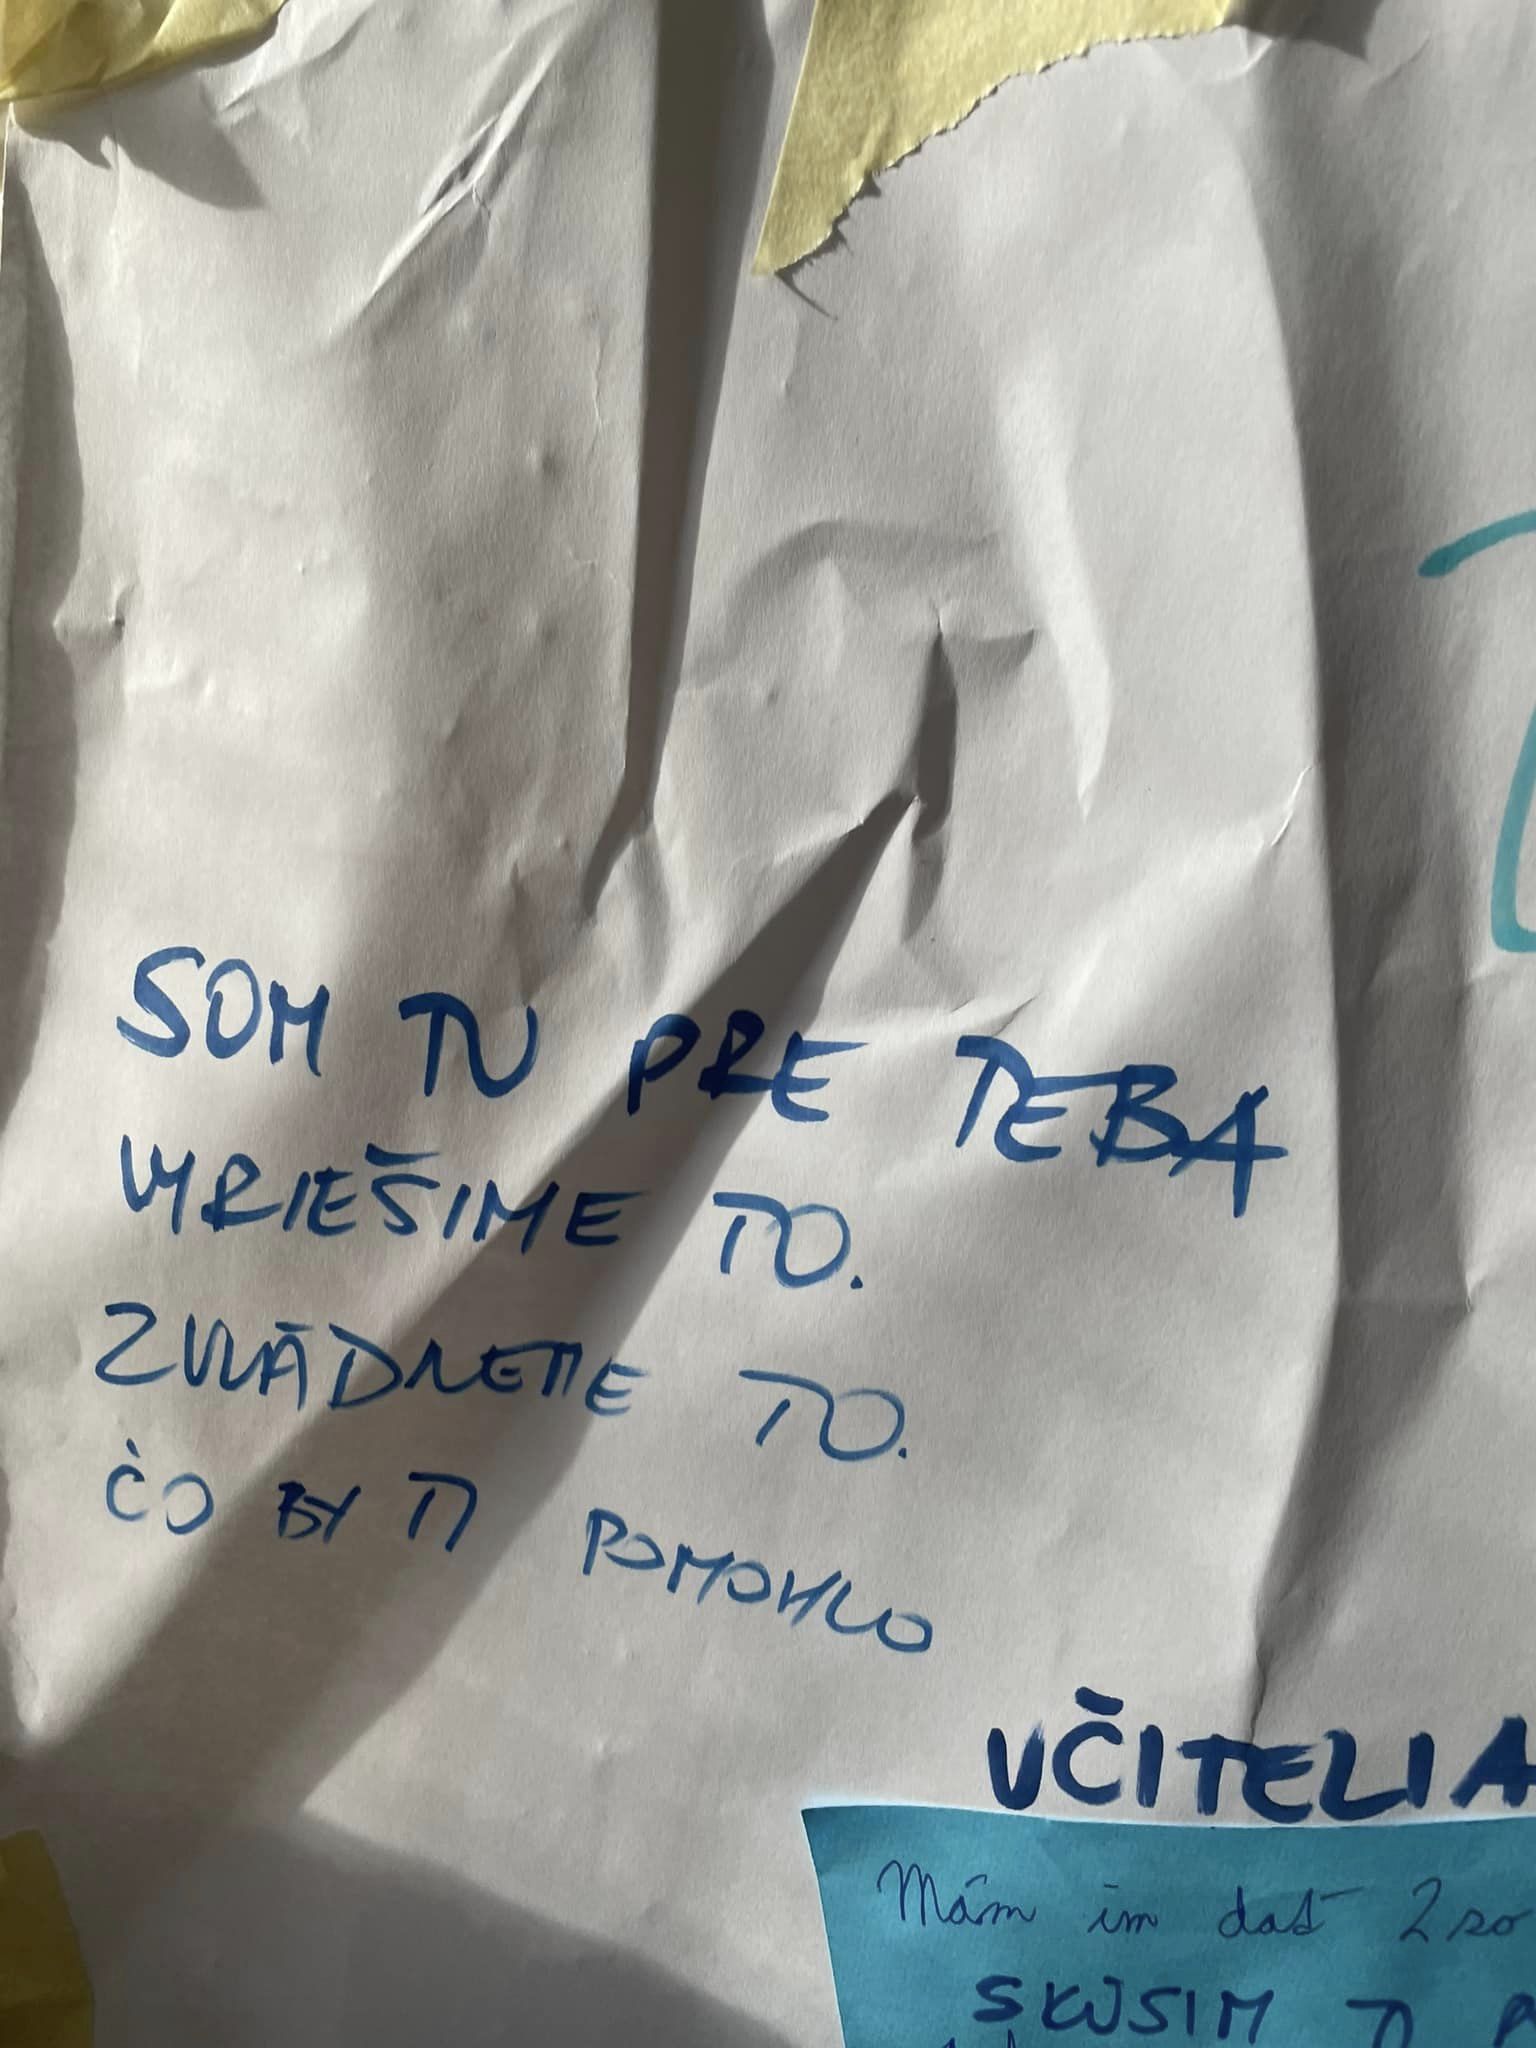 SOM TU PRE TEBA
VYRIEŠIME TO.
ZVLÁDNEME TO.
ČO BY TI POMOHLO
UČITELIA
Mám im dať 2
SKÚSIM TI